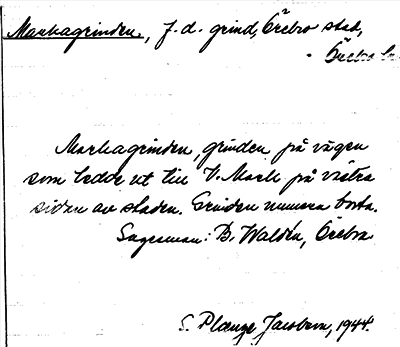 Markagrinden, f.d. grind, Örebro stad,
Örebro
Markagrinden, grinden på vägen
som ledde ut till V. Mark på västra
sidan av staden. Grinden numera borta.
Sagesman: B. Waldén, Örebro.
S. Plænge Jacobson, 1944.